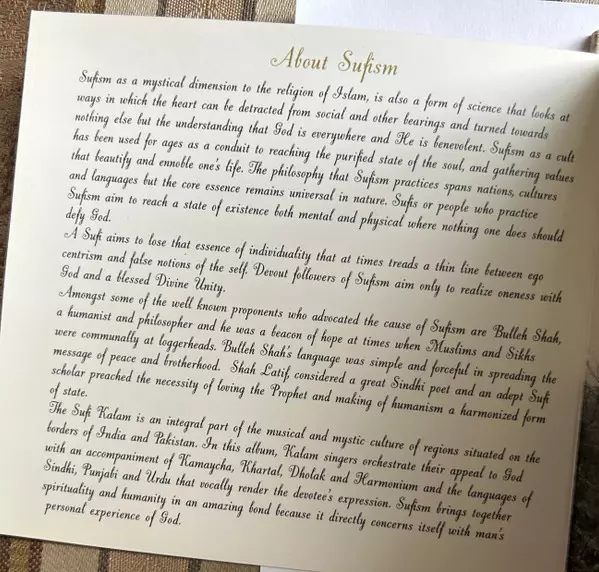 About Sufism
Sufism as a mystical dimension to the religion of Islam, is also a form of science that looks at
ways in which the heart can be detracted from social and other bearings and turned towards
nothing else but the understanding that God is everywhere and He is benevolent. Sufism as a cult
has been used for ages as a conduit to reaching the purified state of the soul, and gathering values
that beautify and ennoble one's life. The philosophy that Sufism practices spans nations, cultures
and languages but the core essence remains universal in nature. Sufis or people who practice
Sufism aim to reach a state of existence both mental and physical where nothing one does should
defy God.
A Sufi aims to lose that essence of individuality that at times treads a thin line between ego
centrism and false notions of the self. Devout followers of Sufism aim only to realize oneness with
God and a blessed Divine Unity.
Amongst some of the well known proponents who advocated the cause of Sufism are Bulleh Shah,
a humanist and philosopher and he was a beacon of hope at times when Muslims and Sikhs
were communally at loggerheads. Bulleh Shah's language was simple and forceful in spreading the
message of peace and brotherhood. Shah Latif, considered a great Sindhi poet and an adept Sufi
scholar preached the necessity of loving the Prophet and making of humanism a harmonized form
of state.
The Sufi Kalam is an integral part of the musical and mystic culture of regions situated on the
borders of India and Pakistan. In this album, Kalam singers orchestrate their appeal to God
with an accompaniment of Kamaycha, Khartal, Dholak and Harmonium and the languages of
Sindhi, Punjabi and Urdu that vocally render the devotee's expression. Sufism brings together
spirituality and humanity in an amazing bond because it directly concerns itself with man's
personal experience of God.